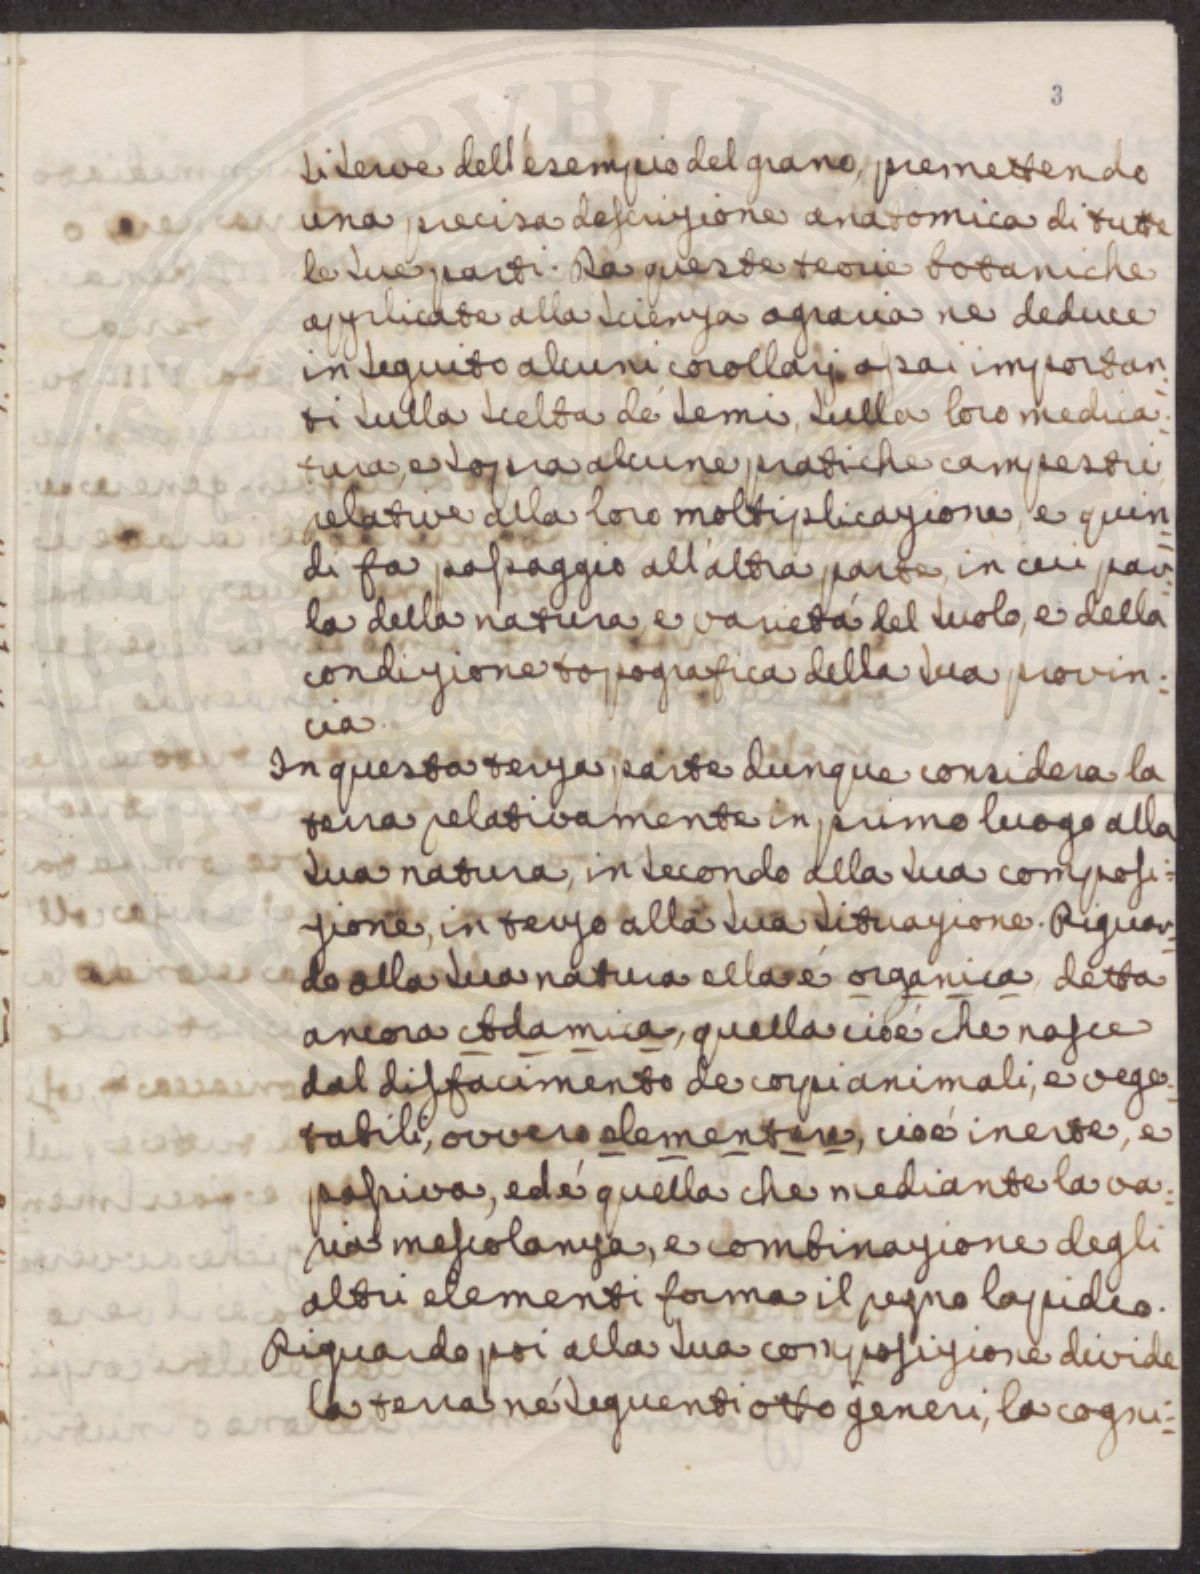 3
si serve dell'esempio del grano, premettendo
una precisa descrizione anatomica di tutte
le sue parti. Da queste teorie botaniche
applicate alla scienza agraria ne deduce
in seguito alcuni corollarj assai importan=
ti sulla scelta de' semi, sulla loro medica=
tura, e sopra alcune pratiche campestri
relative alla loro moltiplicazione, e quin=
di fa passaggio all'altra parte, in cui par=
la della natura e varietá del suolo, e della
condizione topografica della sua provin=
cia.
In questa terza parte dunque considera la
terra relativamente in primo luogo alla
sua natura, in secondo alla sua composi=
zione, in terzo alla sua situazione. Riguar=
do alla sua natura ella é organica, detta
ancora Adamica, quella cioé che nasce
dal disfacimento de corpi animali, e vege=
tabili, ovvero elementare, cioé inerte, e
passiva, ed é quella che mediante la va=
ria mescolanza, e combinazione degli
altri elementi forma il regno lapideo.
Riguardo poi alla sua composizione divide
la terra né seguenti otto generi, la cogni=